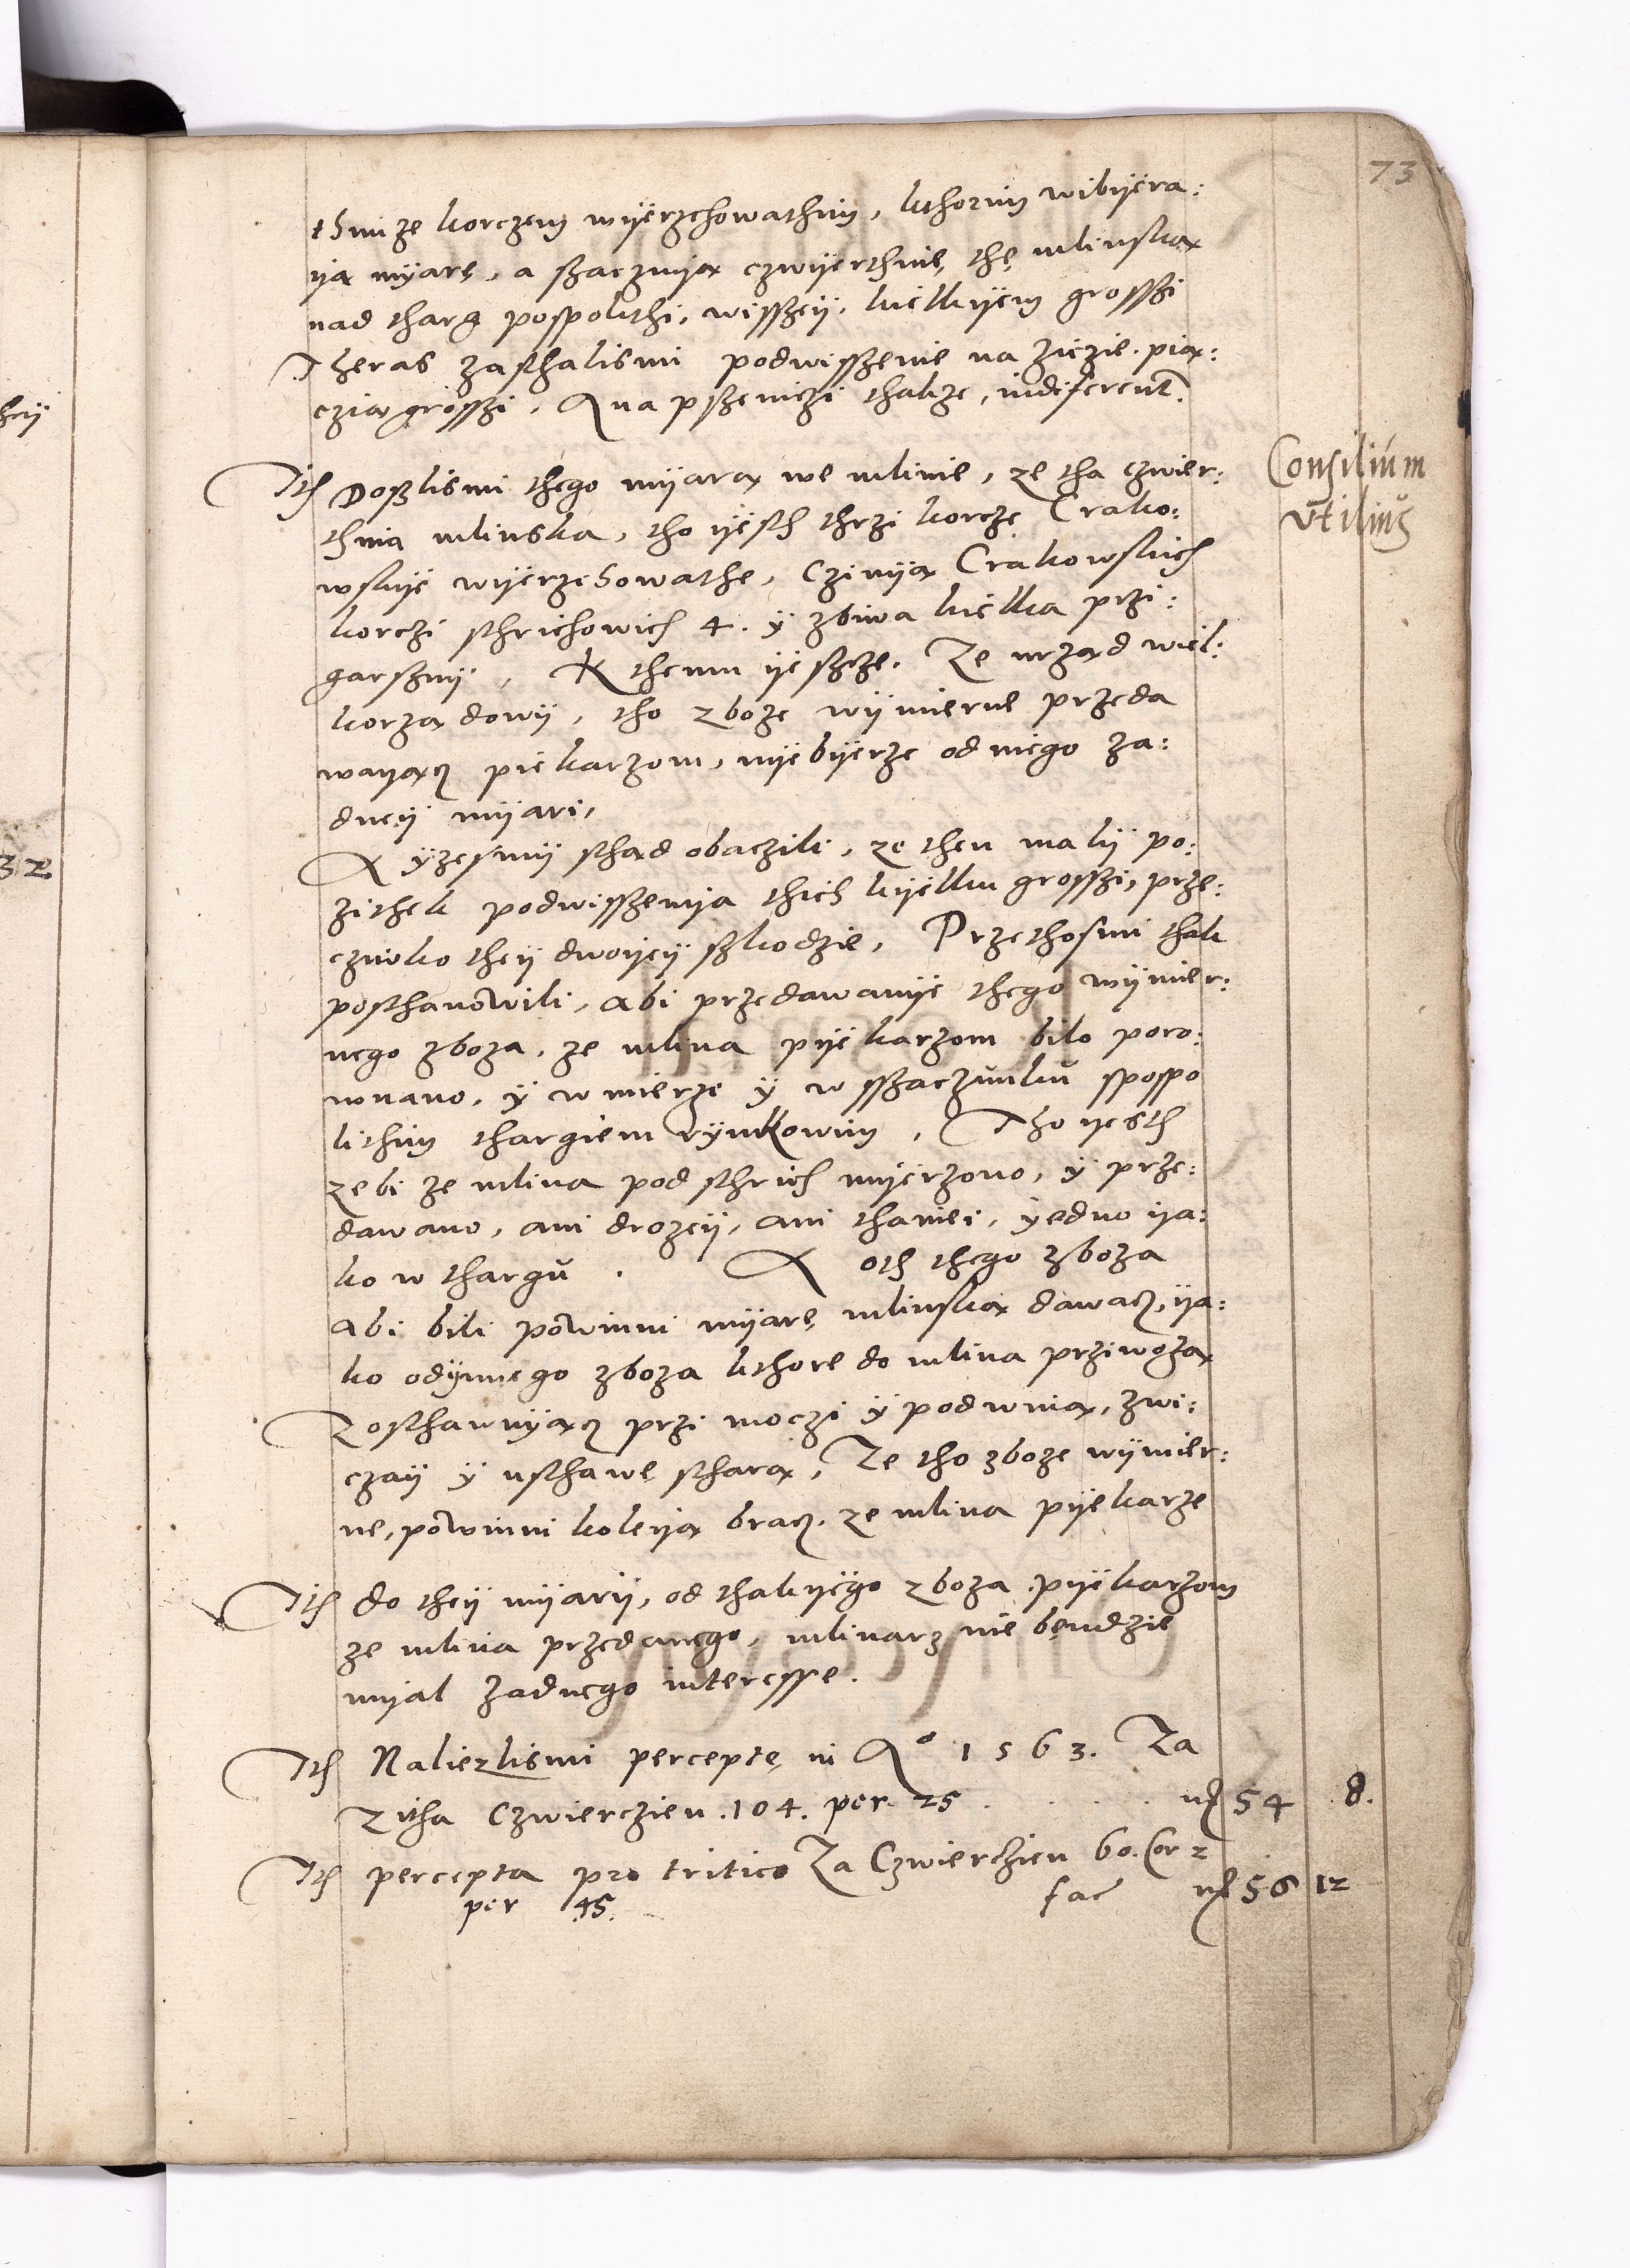 73
thmize korczem wyerzchowathim, kthorim wibyera:
ya myarę, a szaczuya czwyerthnię thę mlinska
nad tharg pospolithi, wisszey, kielkyem grosszi
Theras zasthalismi podwisszenie na życzie. pia:
czia grosszi, A na pszeniczi thakze, indiferent.
Consilium
vtilius
Ith Doszlismi thego myara we mlinie, ze tha czwier:
thnia mlinska, tho yesth thrzi korcze Crako:
wskye wyerzchowathe, Czinya Crakowskich
korczi schrichowich 4. ÿ zbiwa kielka przi:
garszny, K themu yeszcze. Ze urzad wiel:
korzadowy, tho zboze wymierne przeda
wayacz piekarzom, nyebyerze od niego za:
dney myari,
A yzesmy sthad obaczili, ze then maly po:
zithek podwisszenya thich kyelku grosszi, prze:
cziwko they dwoyey szkodzie, Przethosmi thak
posthanowili, abi przedawanye thego wymier:
nego zboza, ze mlina pyekarzom bilo poro:
wnano, ÿ w mierze ÿ w sszaczunku spospo
lithim thargiem rynkowim, Tho yesth
zebi ze mlina pod schrich myerzono, ÿ prze:
dawano, ani drozey, ani thaniei, yedno ya:
ko w thargu. A oth thego zboza
abi bili powinni myarę mlinska dawacz, ya:
ko odynnego zboza kthore do mlina prziwoza
Zosthawuyacz przi moczi ÿ podwnia, zwi:
czay ÿ usthawę schara, Ze tho zboze wymier:
ne, powinni koleya bracz ze mlina pyekarze
Ith do they myary, od thakyego zboza pyekarzom
ze mlina przedanego, mlinarz nie bęndzie
myal zadnego interesse.
Ith Naliezlismi perceptę in Ao 1563. Za
Zitha Czwierczien .104. per 25 . . . . . 54 8.
Ith percepta pro tritico Za Czwierczien 60. Cor 2
per 45. fac 56 12